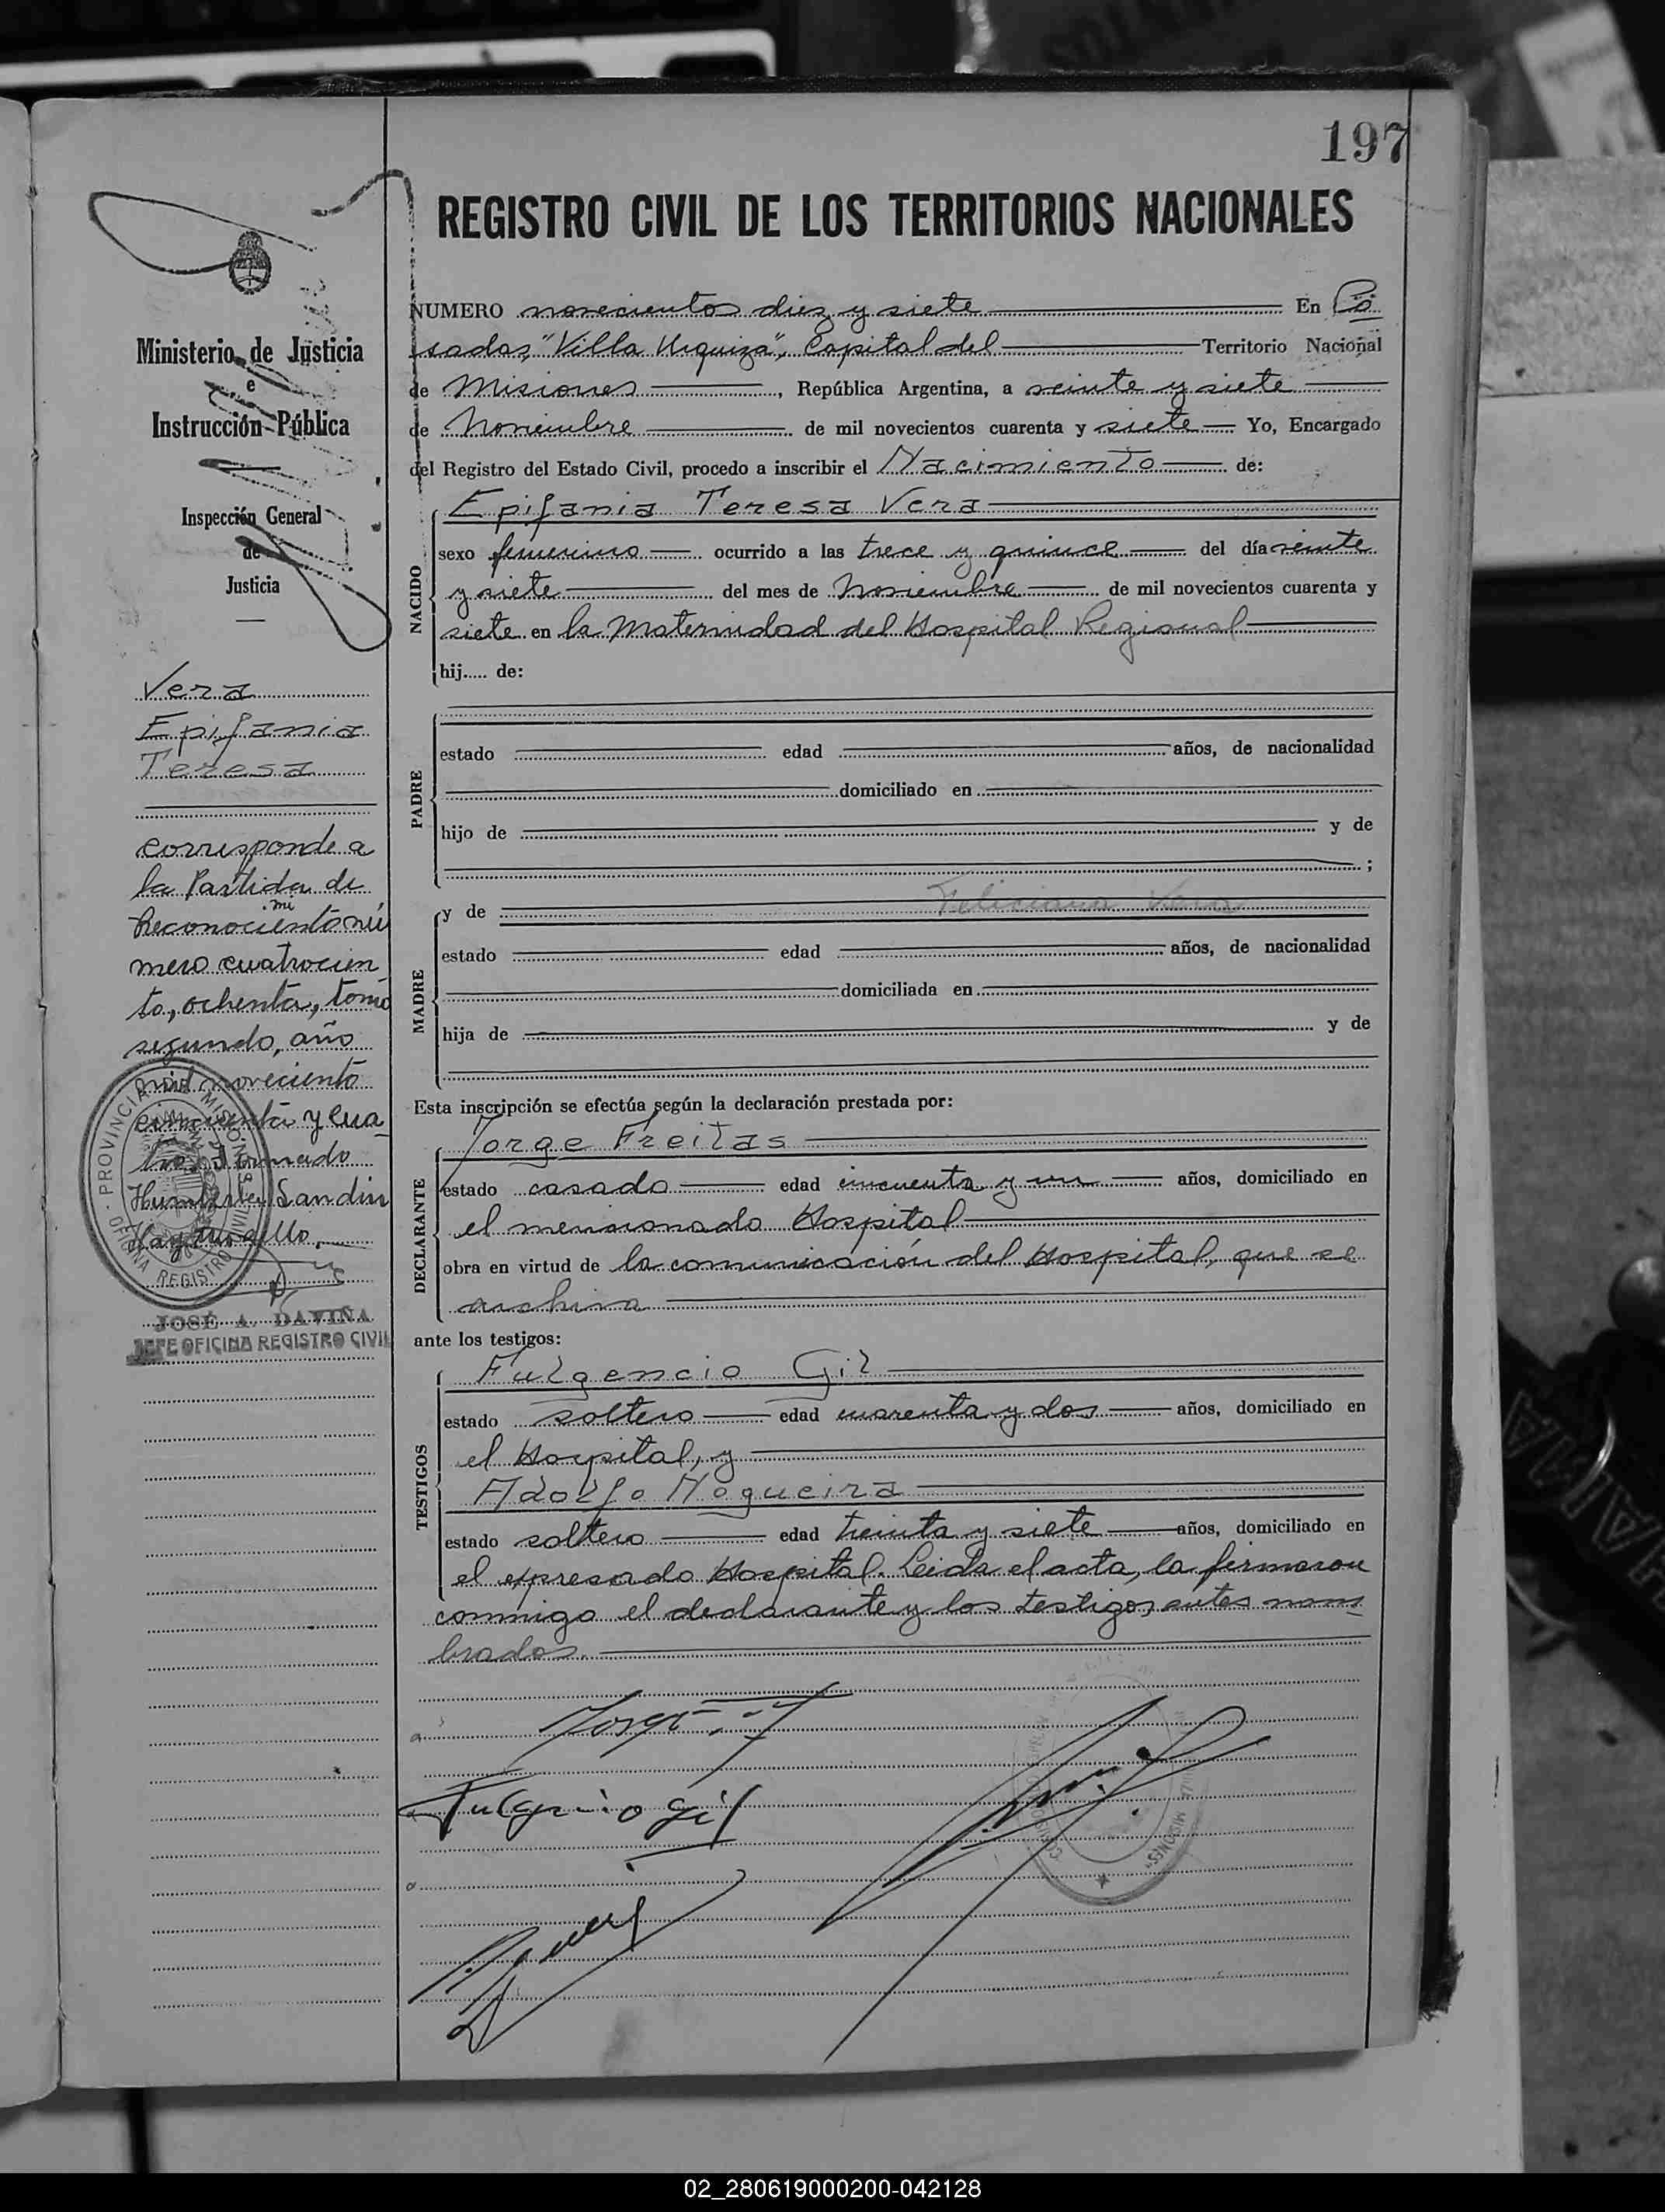 197
REGISTRO CIVIL DE LOS TERRITORIOS NACIONALES
Ministerio de Justicia
e
Instrucción Pública
Inspección General
de
Justicia
Vera
Epifania
Teresa
corresponde a
la Partida de
Reconociento nú
mi
mero cuatrocien
to, ochenta, tomo
segundo, año
mil noveciento
cincuenta y cua
tro. Firmado
Humberto Sandin
Hay un sello.
PROVINCIA DE MISIONES
OFICINA REGISTRO CIVIL
JOSÉ A. DAVIÑA
JEFE OFICINA REGISTRO CIVIL
NUMERO novecientos diez y siete En Po
sadas, "Villa Urquiza", Capital del Territorio Nacional
de Misiones, República Argentina, a veinte y siete
de Noviembre de mil novecientos cuarenta y siete Yo, Encargado
del Registro del Estado Civil, procedo a inscribir el Nacimiento de:
NACIDO
Epifania Teresa Vera
sexo femenino ocurrido a las trece y quince del día veinte
y siete del mes de Noviembre de mil novecientos cuarenta y
siete en la Maternidad del Hospital Regional
hij..... de:
PADRE
estado edad años, de nacionalidad
domiciliado en
hijo de y de
;
MADRE
y de Feliciana Vera
estado edad años, de nacionalidad
domiciliada en
hija de y de
Esta inscripción se efectúa según la declaración prestada por:
DECLARANTE
Jorge Freitas
estado casado edad cincuenta y un años, domiciliado en
el mencionado Hospital
obra en virtud de la comunicación del Hospital, que se
archiva
ante los testigos:
TESTIGOS
Fulgencio Gil
estado soltero edad cuarenta y dos años, domiciliado en
el Hospital, y
Adolfo Nogueira
estado soltero edad treinta y siete años, domiciliado en
el expresado Hospital. Leida el acta, la firmaron
conmigo el declarante y los testigos antes nom
brados.
Fulgencio Gil
MISIONES
02_280619000200-042128